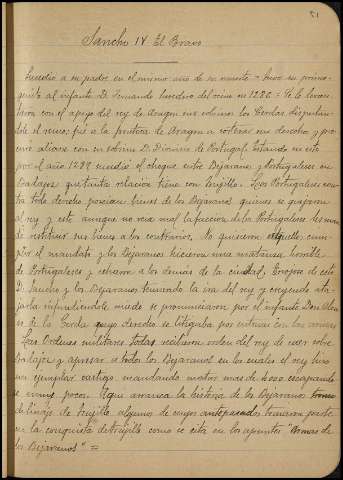 51
Sancho IV El Bravo
Sucedio a su padre en el mismo año de su muerte = tuvo su primo-
genito al infante D. Fernando heredero del reino en 1286 = Se le levan-
taron con el apoyo del rey de Aragon sus sobrinos los Cerdas disputan-
dole el reino; fué a la frontera de Aragon a sostener sus derechos y pro-
curó aliarse con su sobrino D. Dionisio de Portugal. Estando en esto
por el año 1289 sucedió el choque entre Bejaranos y Portugaleses en
Badajoz que tanta relacion tiene con Trujillo. Los Portugaleses con-
tra todo derecho poseian bienes de los Bejaranos quienes se quejaron
al rey y este aunque no veia mal la faccion de los Portugaleses les mandó
de restituir sus bienes a los contrarios. No quisieron aquellos cum-
plir el mandato y los Bejaranos hicieron una matanza horrible
de Portugaleses y echaron a los demás de la ciudad. Enojose de esto
D. Sancho y los Bejaranos temiendo la ira del rey y creyendo ata-
jarla infundiendole miedo se pronunciaron por el infante Don Alon-
so de la Cerda cuyo derecho se litigaba por entonces con las armas
Las Ordenes militares todas recibieron orden del rey de caer sobre
Badajoz y apresar a todos los Bejaranos en los cuales el rey hizo
un ejemplar castigo mandando matar mas de 4000 escapando
se muy pocos. Aqui arranca la historia de los Bejaranos
de linaje de Trujillo algunos de cuyos antepasados tomaron parte
en la conquista de Trujillo como se cita en los apuntes "Armas de
los Bejaranos" =